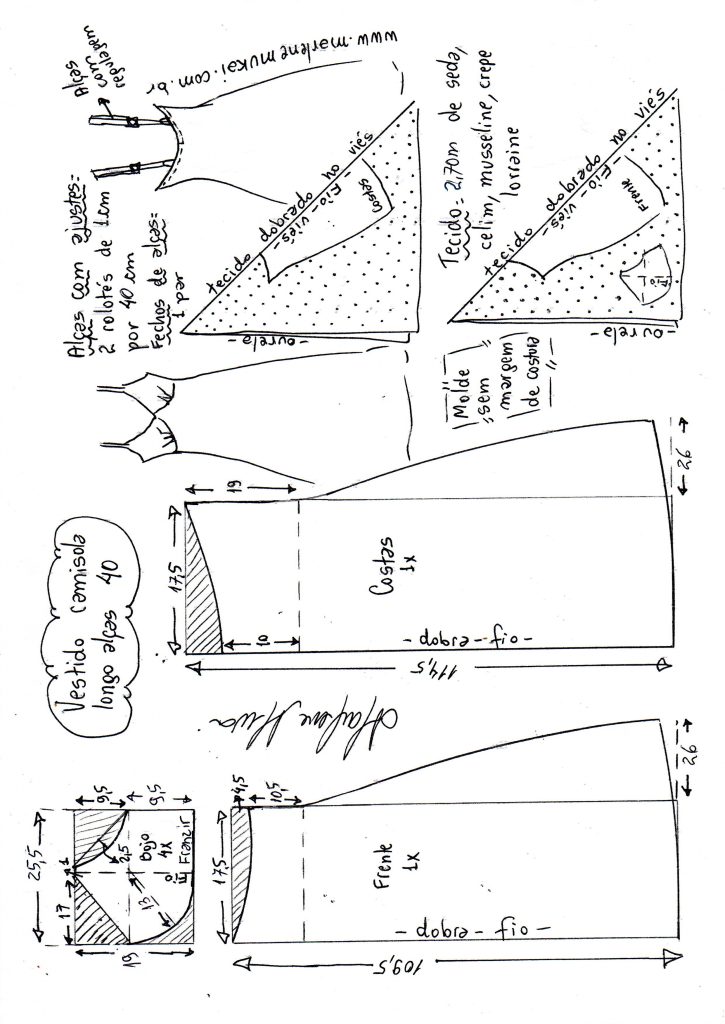 Vestido camisola
longo alças 40
Alças com ajustes:
2 rolotês de 1cm
por 40 cm
Fechos de alças:
1 par
Alças
com
regulagem
www.marlenemukai.com.br
tecido dobrado no viés
-Fio-viés-
Costas
-ourela-
Tecido= 2,70m de seda,
cetim, musseline, crepe
lorraine
tecido dobrado no viés
-Fio-viés-
Frente
Fio
-ourela-
Molde
sem
margem
de costura
17,5
19
10
Costas
1x
-fio-dobra-
114,5
26
25,5
17
1
9,5
9,5
2,5
Bojo
4x
Fio
Franzir
13
19
17,5
4,5
10,5
Frente
1x
-fio-dobra-
109,5
26